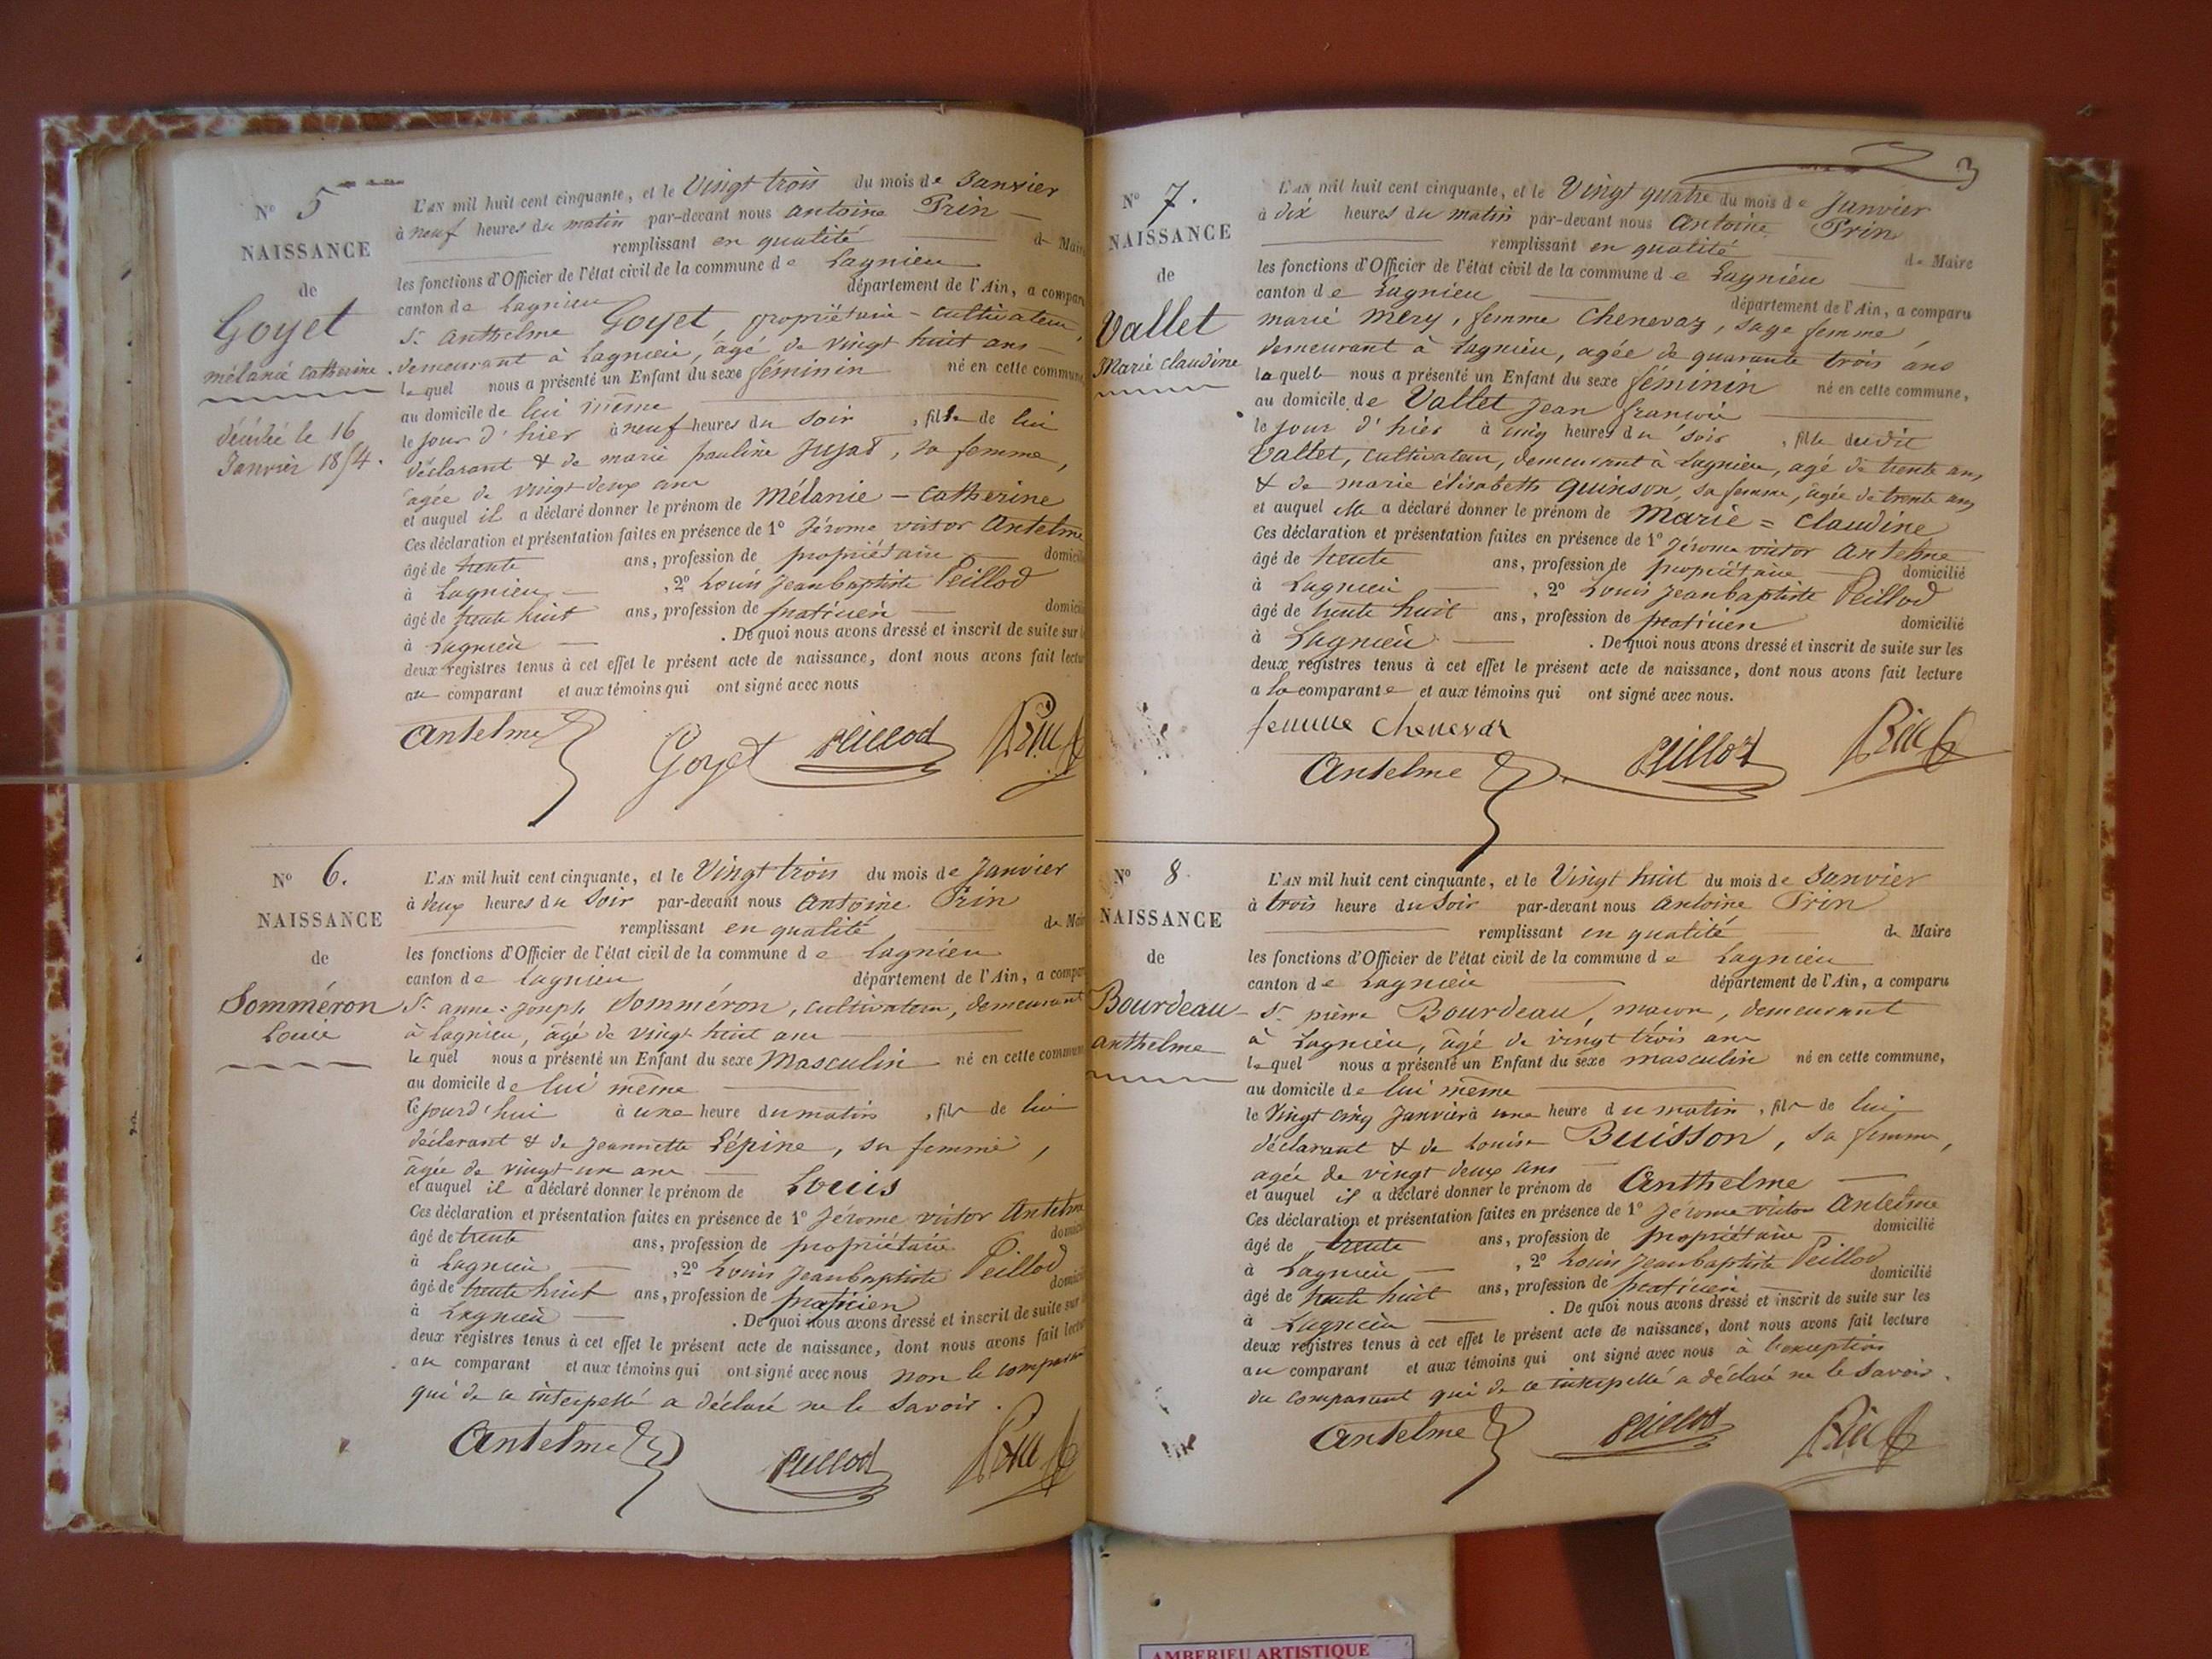 N° 5
NAISSANCE
de
Goyet
mélanie catherine.
décédée le 16
Janvier 1854.
L'AN mil huit cent cinquante, et le Vingt trois du mois de Janvier
à neuf heures du matin par-devant nous antoine Prin
remplissant en qualité de Maire
les fonctions d'Officier de l'état civil de la commune de Lagnieu
canton de Lagnieu département de l'Ain, a compar
Sr. Anthelme Goyet, propriétaire - cultivateur,
demeurant à Lagnieu, âgé de vingt huit ans
lequel nous a présenté un Enfant du sexe féminin né en cette commune
au domicile de lui même
le jour d'hier à neuf heures du soir, fille de lui
déclarant & de marie pauline Jujat, sa femme,
âgée de vingt deux ans
et auquel il a déclaré donner le prénom de Mélanie - Catherine
Ces déclaration et présentation faites en présence de 1° Jérome victor Antelme
âgé de trente ans, profession de propriétaire domicilié
à Lagnieu, 2° Louis Jeanbaptiste Peillod
âgé de trente huit ans, profession de praticien domicilié
à Lagnieu. De quoi nous avons dressé et inscrit de suite sur
deux registres tenus à cet effet le présent acte de naissance, dont nous avons fait lectu
au comparant et aux témoins qui ont signé avec nous
Antelme Goyet Peillod Prin
N° 6.
NAISSANCE
de
Somméron
Louis
L'AN mil huit cent cinquante, et le Vingt trois du mois de Janvier
à deux heures du soir par-devant nous antoine Prin
remplissant en qualité de Mair
les fonctions d'Officier de l'état civil de la commune de Lagnieu
canton de Lagnieu département de l'Ain, a compar
Sr. anne-joseph Somméron, cultivateur, demeurant
à Lagnieu, âgé de vingt huit ans
lequel nous a présenté un Enfant du sexe Masculin né en cette commune
au domicile de lui même
cejourd'hui à une heure du matin, fils de lui
déclarant & de Jeannette Lépine, sa femme,
âgée de vingt un ans
et auquel il a déclaré donner le prénom de Louis
Ces déclaration et présentation faites en présence de 1° Jérome victor Antelme
âgé de trente ans, profession de propriétaire domicilié
à Lagnieu, 2° Louis Jeanbaptiste Peillod
âgé de trente huit ans, profession de praticien domicilié
à Lagnieu. De quoi nous avons dressé et inscrit de suite sur
deux registres tenus à cet effet le présent acte de naissance, dont nous avons fait lectu
au comparant et aux témoins qui ont signé avec nous non le comparant
qui de ce interpellé a déclaré ne le savoir.
Antelme Peillod Prin
3
N° 7.
NAISSANCE
de
Vallet
Marie Claudine
L'AN mil huit cent cinquante, et le Vingt quatre du mois de Janvier
à dix heures du matin par-devant nous Antoine Prin
remplissant en qualité de Maire
les fonctions d'Officier de l'état civil de la commune de Lagnieu
canton de Lagnieu département de l'Ain, a comparu
marie Mery, femme Chenevaz, sage femme
demeurant à Lagnieu, agée de quarante trois ans
laquelle nous a présenté un Enfant du sexe féminin né en cette commune,
au domicile de Vallet Jean françois
le jour d'hier à cinq heures du soir, fille dudit
Vallet, cultivateur, demeurant à Lagnieu, agé de trente ans,
& de marie élisabeth Quinson, sa femme, âgée de trente ans
et auquel elle a déclaré donner le prénom de Marie = Claudine
Ces déclaration et présentation faites en présence de 1° Jérome victor Antelme
âgé de trente ans, profession de propriétaire domicilié
à Lagnieu, 2° Louis Jeanbaptiste Peillod
âgé de trente huit ans, profession de praticien domicilié
à Lagnieu. De quoi nous avons dressé et inscrit de suite sur les
deux registres tenus à cet effet le présent acte de naissance, dont nous avons fait lecture
a la comparante et aux témoins qui ont signé avec nous.
femme Chenevaz
Antelme Peillod Prin
N° 8
NAISSANCE
de
Bourdeau
anthelme
L'AN mil huit cent cinquante, et le Vingt huit du mois de Janvier
à trois heure du Soir par-devant nous antoine Prin
remplissant en qualité de Maire
les fonctions d'Officier de l'état civil de la commune de Lagnieu
canton de Lagnieu département de l'Ain, a comparu
Sr. pierre Bourdeau, maçon, demeurant
à Lagnieu, âgé de vingt trois ans
lequel nous a présenté un Enfant du sexe masculin né en cette commune,
au domicile de lui même
le Vingt cinq Janvier à une heure du matin, fils de lui
déclarant & de Louise Buisson, sa femme,
agée de vingt deux ans
et auquel il a déclaré donner le prénom de Anthelme
Ces déclaration et présentation faites en présence de 1° Jérome victor Antelme
âgé de trente ans, profession de propriétaire domicilié
à Lagnieu, 2° Louis Jeanbaptiste Peillod
âgé de trente huit ans, profession de praticien domicilié
à Lagnieu. De quoi nous avons dressé et inscrit de suite sur les
deux registres tenus à cet effet le présent acte de naissance, dont nous avons fait lecture
au comparant et aux témoins qui ont signé avec nous à l'exception
du comparant qui de ce interpellé a déclaré ne le savoir.
Antelme Peillod Prin
AMBERIEU ARTISTIQUE